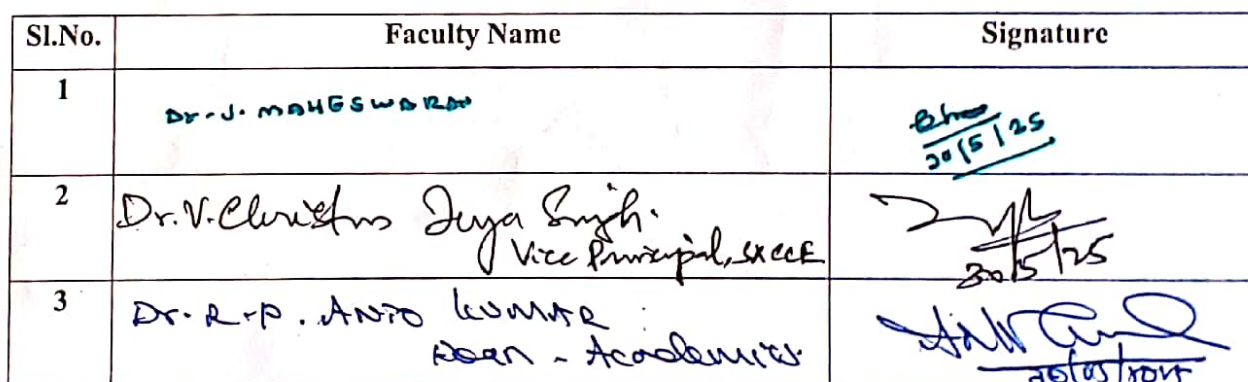 Sl.No. Faculty Name Signature
1 Dr. J. MAHESWARAN
30/5/25
2 Dr. V. Christus Jeya Singh.
Vice Principal, SXCCE
30/5/25
3 Dr. R. P. ANTO KUMAR
Dean - Academics